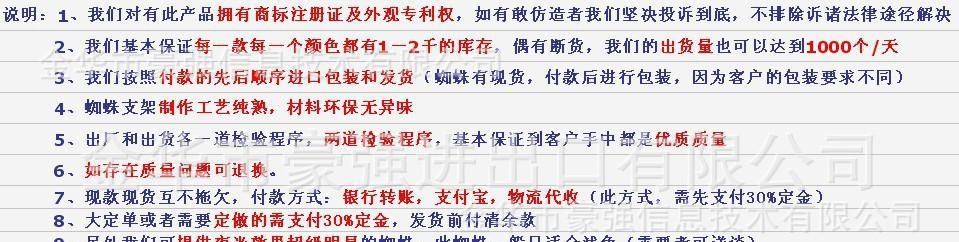 说明：1、我们对有此产品拥有商标注册证及外观专利权，如有敢仿造者我们坚决投诉到底，不排除诉诸法律途径解决
2、我们基本保证每一款每一个颜色都有1－2千的库存，偶有断货，我们的出货量也可以达到1000个/天
3、我们按照付款的先后顺序进口包装和发货（蜘蛛有现货，付款后进行包装，因为客户的包装要求不同）
4、蜘蛛支架制作工艺纯熟，材料环保无异味
5、出厂和出货各一道检验程序，两道检验程序，基本保证到客户手中都是优质质量
6、如存在质量问题可退换。
7、现款现货互不拖欠，付款方式：银行转账，支付宝，物流代收（此方式，需先支付30%定金）
8、大定单或者需要定做的需支付30%定金，发货前付清余款
金华市豪强信息技术有限公司
金华市豪强进出口有限公司
金华市豪强信息技术有限公司